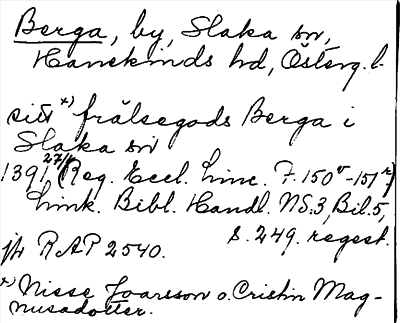 Berga, by, Slaka sn,
Hanekinds hd, Österg. l.
sitt x) frälsegods Berga i
Slaka sn
1391 27/1 (Reg. Eccl. Linc. F. 150v-151r)
Link. Bibl. Handl. NS.3, Bil.5,
s. 249. regest.
jfr RAP 2540.
x) Nisse Joarsson o. Cristin Mag-
nusadotter.